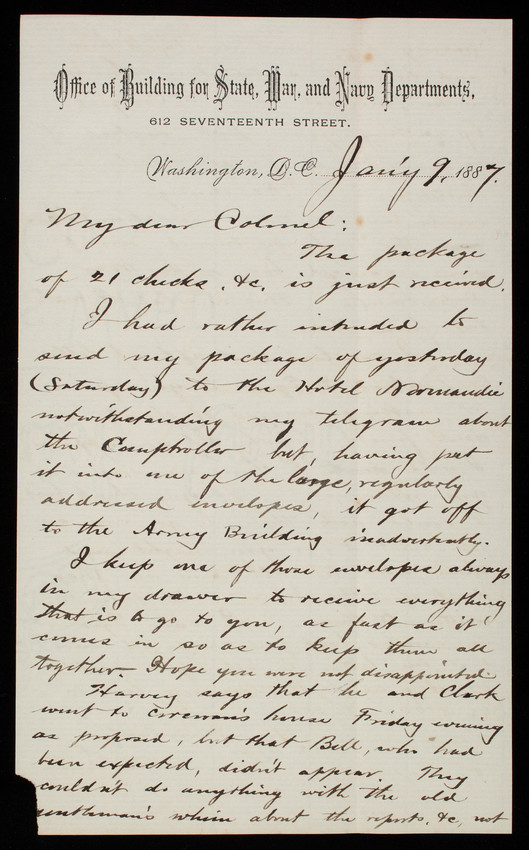 Office of Building for State, War, and Navy Departments,
612 SEVENTEENTH STREET.
Washington, D.C. Jan'y 9, 1887.
My dear Colonel:
The package
of 21 checks, &c. is just received.
I had rather intended to
send my package of yesterday
(Saturday) to the Hotel Normandie
notwithstanding my telegram about
the Comptroller but, having put
it into one of the large, regularly
addressed envelopes, it got off
to the Army Building inadvertently.
I keep one of those envelopes always
in my drawer to receive everything
that is to go to you, as fast as it
comes in so as to keep them all
together. Hope you were not disappointed.
Harvey says that he and Clark
went to house Friday evening
as proposed, but that Bell, who had
been expected, didn't appear. They
couldn't do anything with the old
gentleman's whim about the reports, &c, not